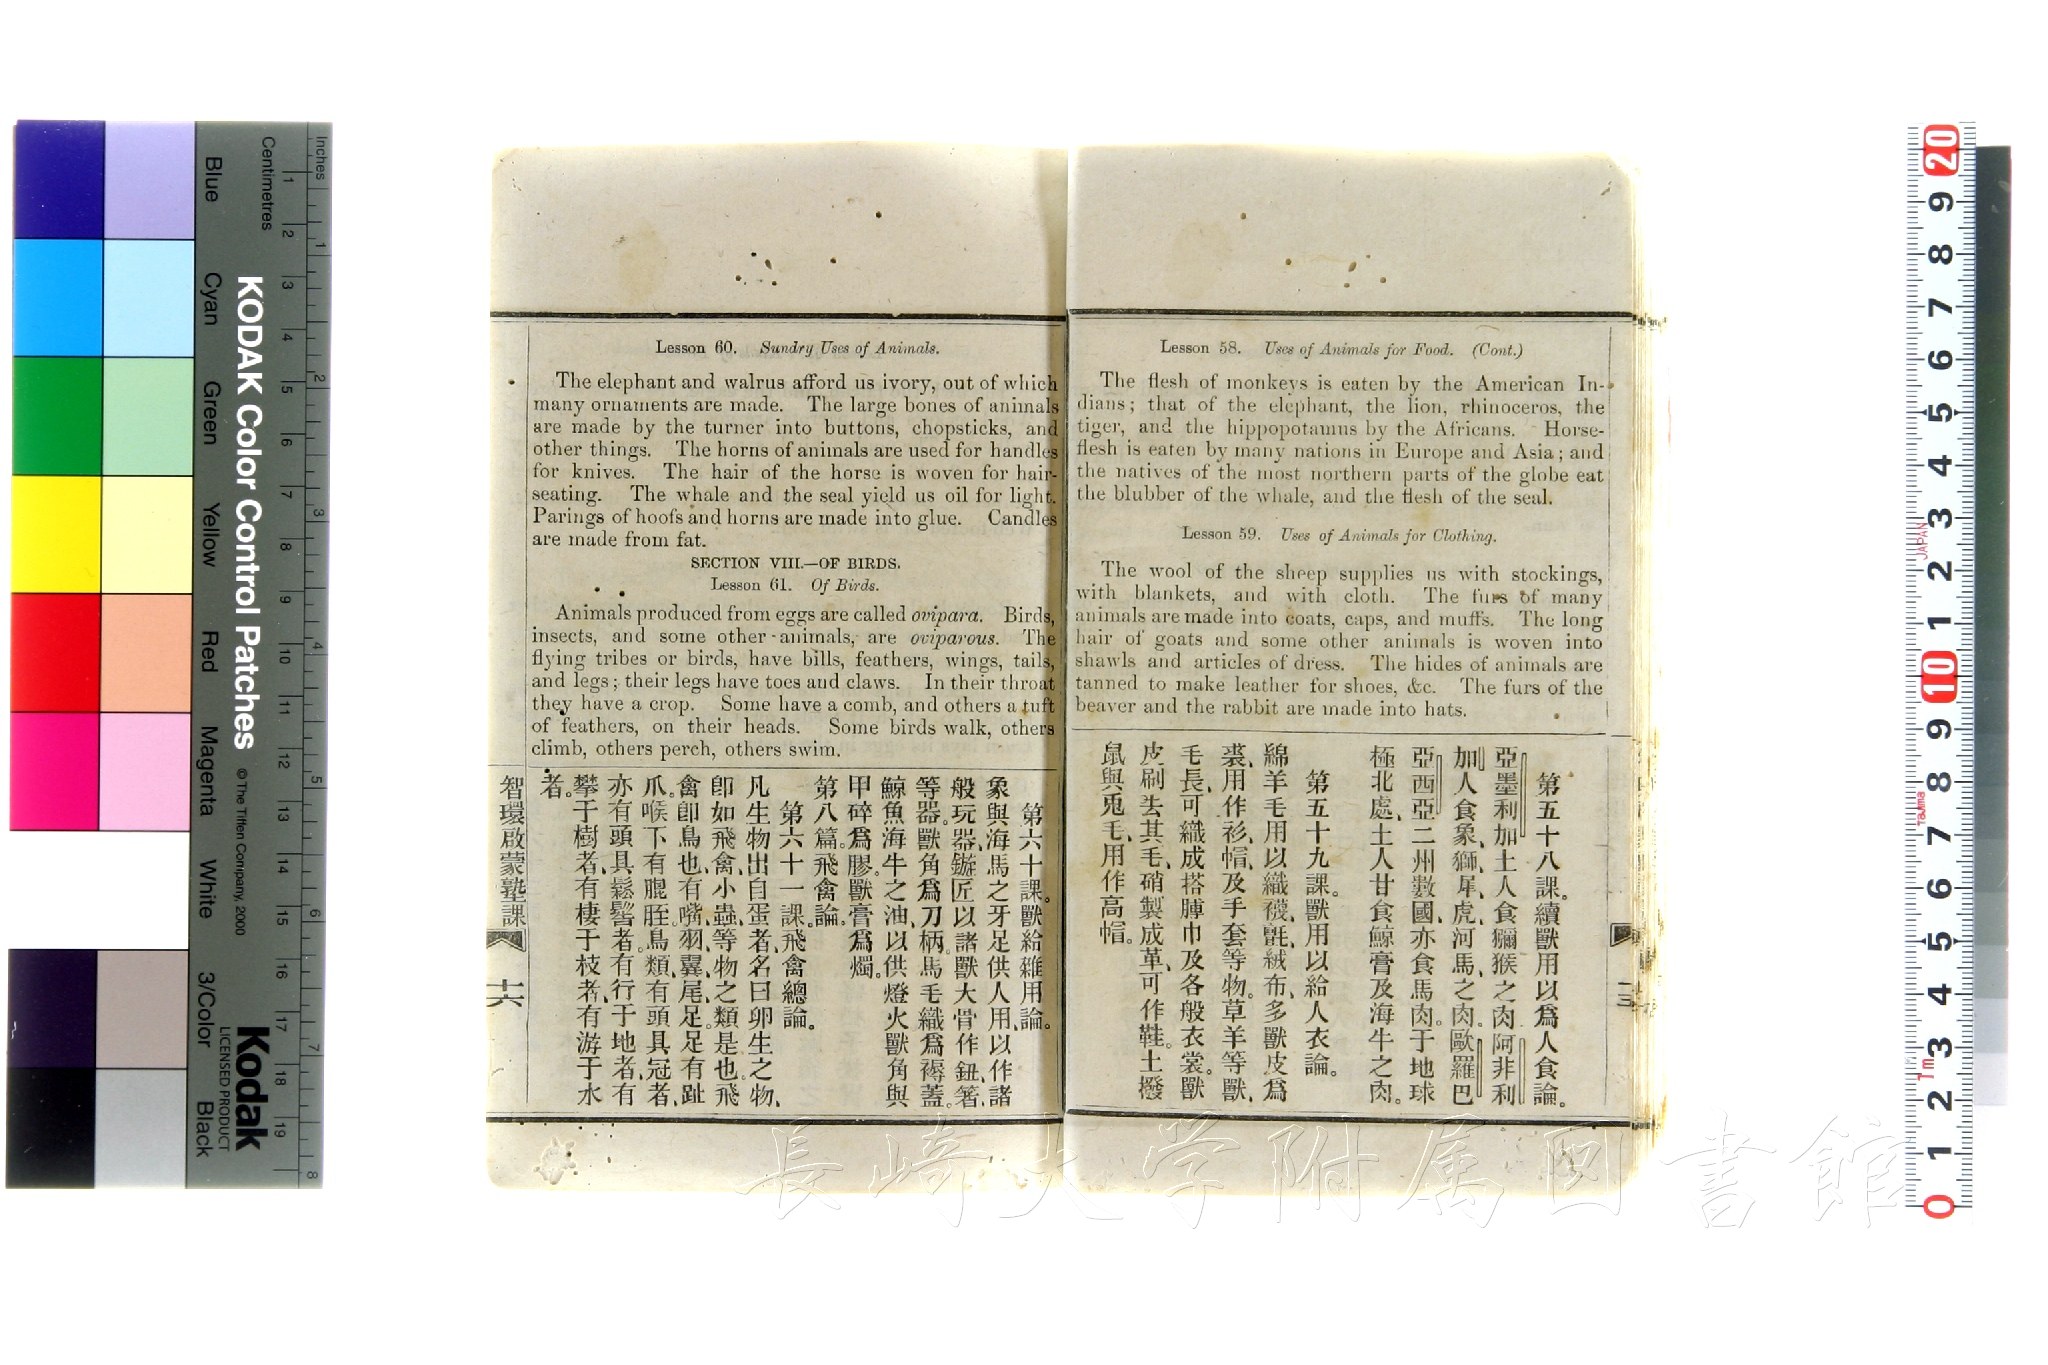 Lesson 58. Uses of Animals for Food. (Cont.)
The flesh of monkeys is eaten by the American In-
dians; that of the elephant, the lion, rhinoceros, the
tiger, and the hippopotamus by the Africans. Horse-
flesh is eaten by many nations in Europe and Asia; and
the natives of the most northern parts of the globe eat
the blubber of the whale, and the flesh of the seal.
Lesson 59. Uses of Animals for Clothing.
The wool of the sheep supplies us with stockings,
with blankets, and with cloth. The furs of many
animals are made into coats, caps, and muffs. The long
hair of goats and some other animals is woven into
shawls and articles of dress. The hides of animals are
tanned to make leather for shoes, &c. The furs of the
beaver and the rabbit are made into hats.
第五十八課。續獸用以爲人食論。
亞墨利加土人食獼猴之肉阿非利
加人食象、獅、犀、虎、河馬、之肉。歐羅巴
亞西亞二州數國、亦食馬肉。于地球
極北處、土人甘食鯨膏及海牛之肉。
第五十九課。獸用以給人衣論。
綿羊毛用以織襪、氈、絨布、多獸皮爲
裘、用作衫、帽、及手套等物。草羊等獸、
毛長、可織成搭膊巾及各般衣裳。獸
皮刷去其毛、硝製成革、可作鞋。土撥
鼠與兎毛、用作高帽。
Lesson 60. Sundry Uses of Animals.
The elephant and walrus afford us ivory, out of which
many ornaments are made. The large bones of animals
are made by the turner into buttons, chopsticks, and
other things. The horns of animals are used for handles
for knives. The hair of the horse is woven for hair-
seating. The whale and the seal yield us oil for light.
Parings of hoofs and horns are made into glue. Candles
are made from fat.
SECTION VIII.—OF BIRDS.
Lesson 61. Of Birds.
Animals produced from eggs are called ovipara. Birds,
insects, and some other animals, are oviparous. The
flying tribes or birds, have bills, feathers, wings, tails,
and legs; their legs have toes and claws. In their throat
they have a crop. Some have a comb, and others a tuft
of feathers, on their heads. Some birds walk, others
climb, others perch, others swim.
第六十課。獸給雜用論。
象與海馬之牙足供人用、以作諸
般玩器、鏇匠以諸獸大骨作鈕、箸、
等器。獸角爲刀柄。馬毛織爲褥蓋。
鯨魚海牛之油、以供燈火獸角與
甲碎爲膠。獸膏爲燭。
第八篇。飛禽論。
第六十一課。飛禽總論。
凡生物出自蛋者、名曰卵生之物、
卽如飛禽、小蟲、等物之類是也。飛
禽卽鳥也、有嘴、羽、翼、尾、足。足有趾
爪。喉下有膍胵。鳥類、有頭具冠者、
亦有頭具鬆髻者。有行于地者、有
攀于樹者、有棲于枝者、有游于水
者。
智環啟蒙塾課
十六
KODAK Color Control Patches
© The Tiffen Company, 2000
Kodak
LICENSED PRODUCT
Inches
Centimetres
Blue
Cyan
Green
Yellow
Red
Magenta
White
3/Color
Black
JAPAN
Tajima
1m
長崎大学附属図書館